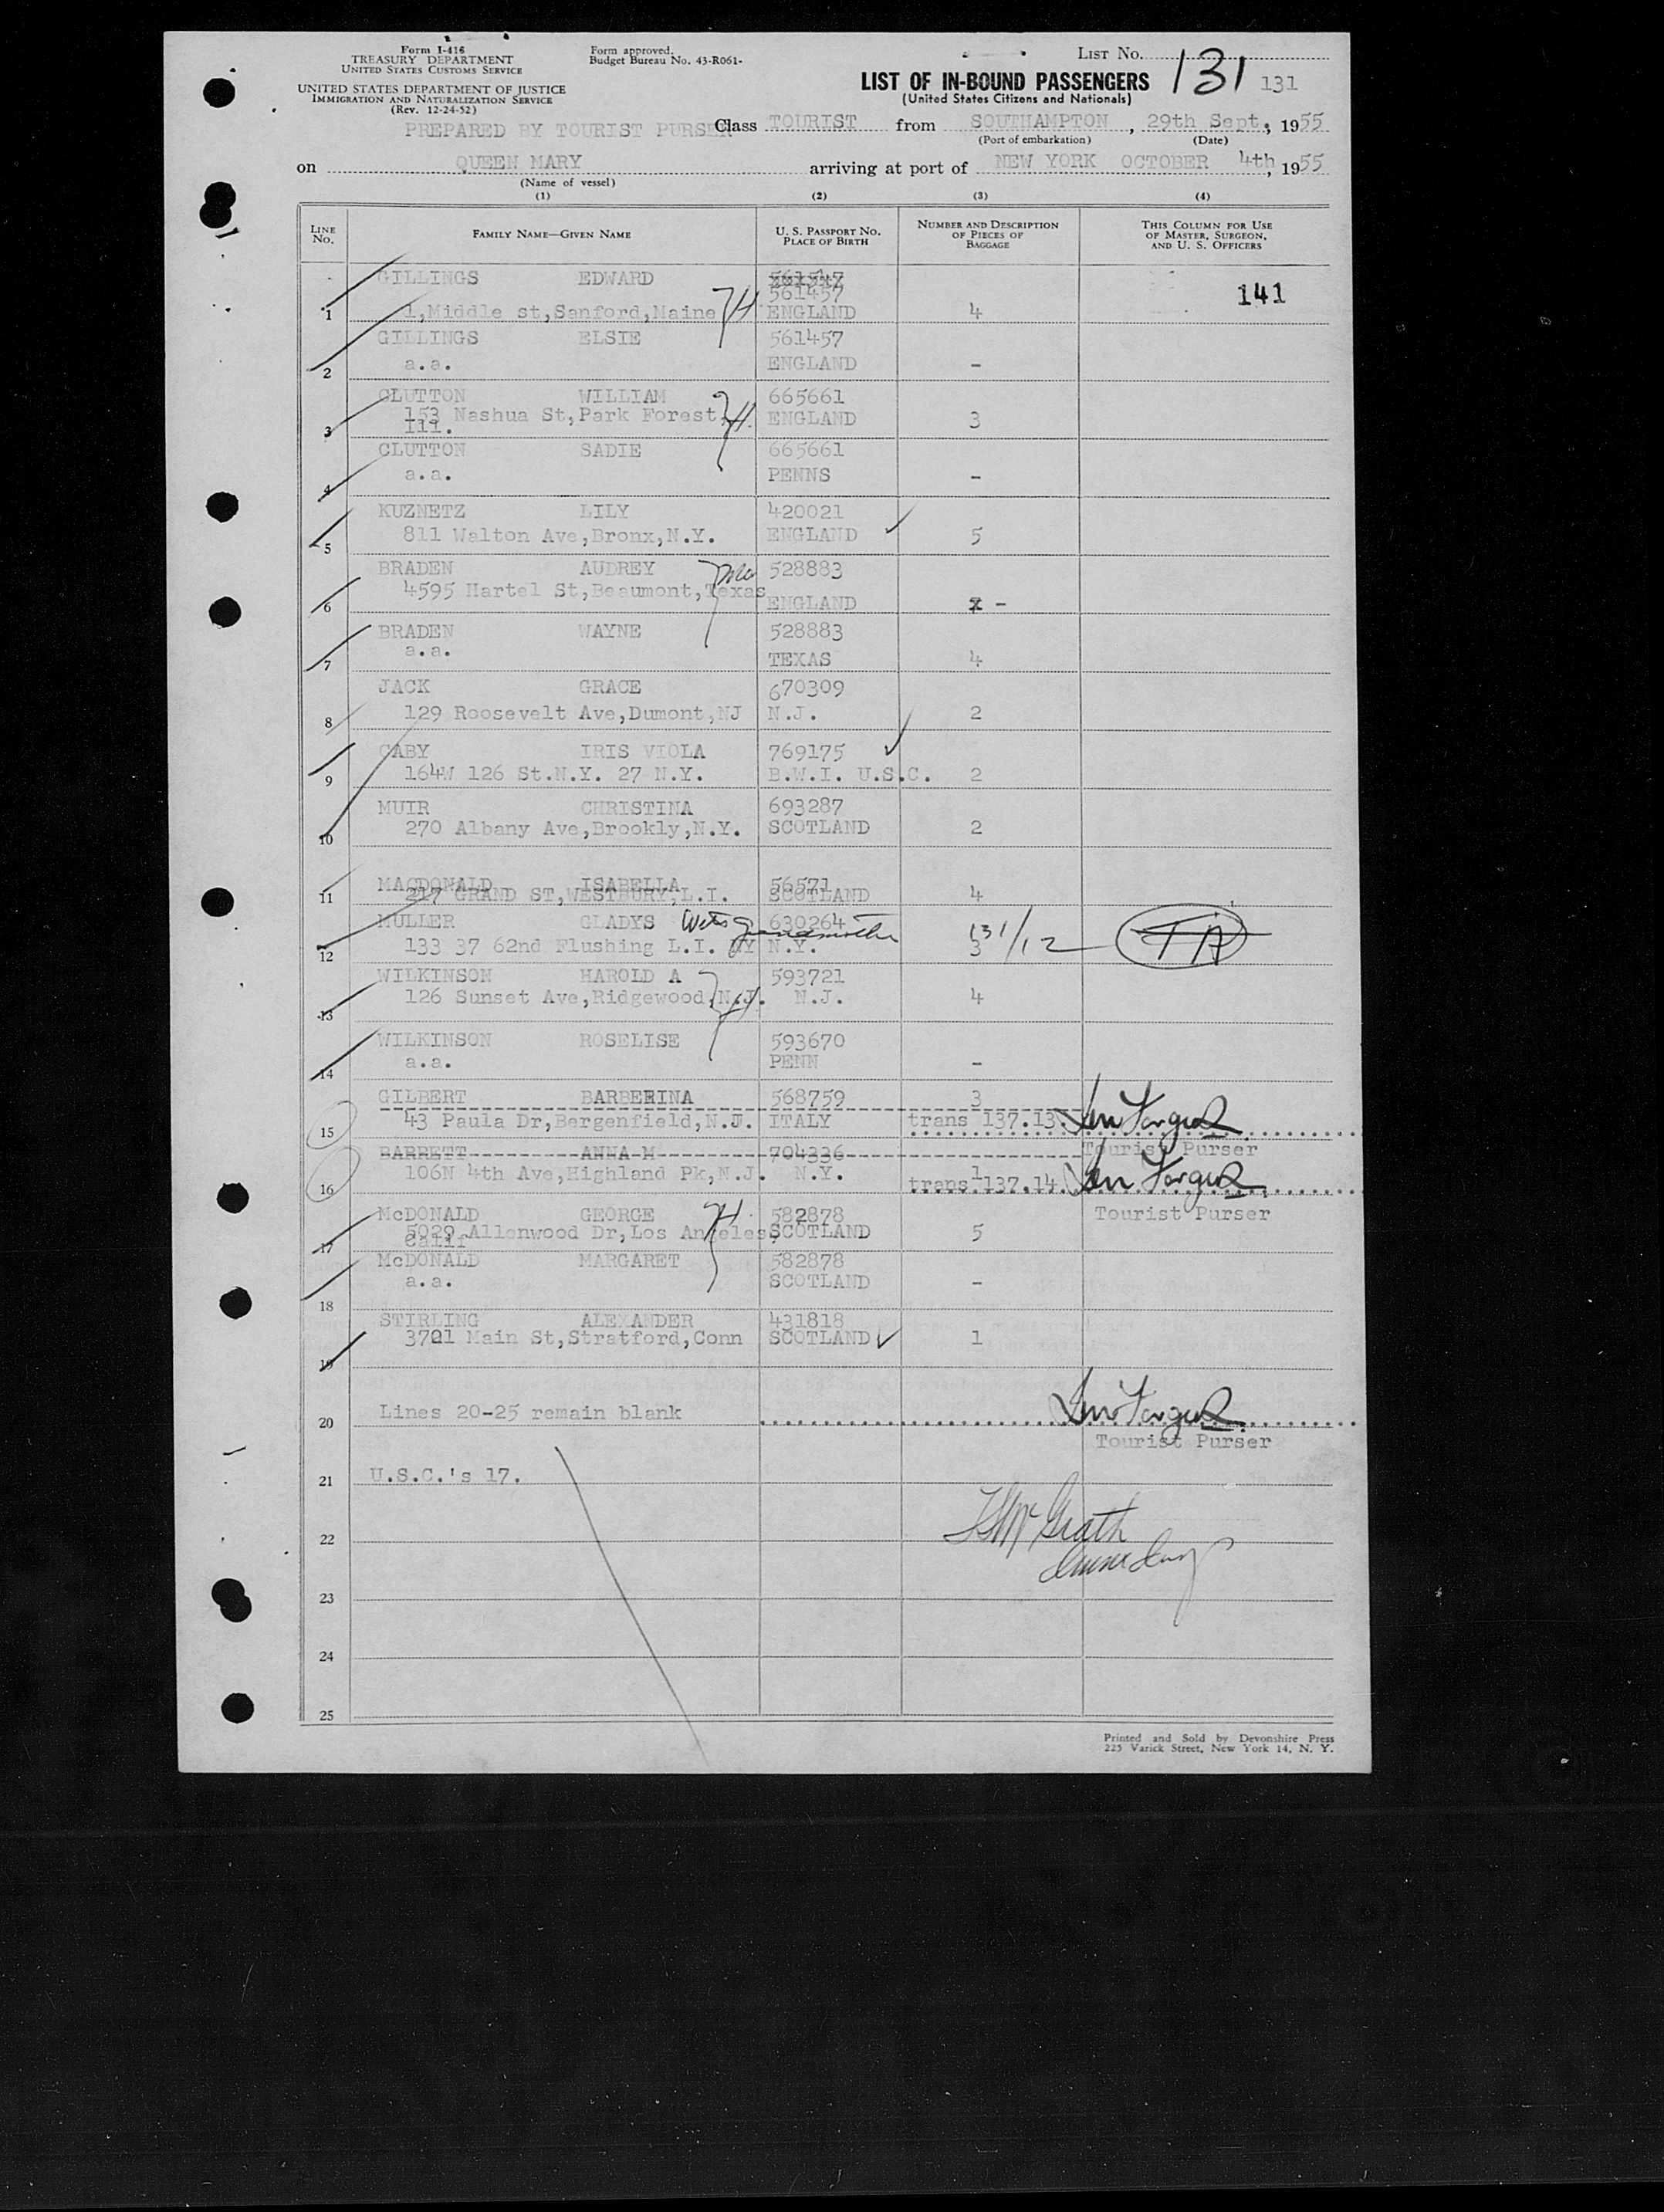 Form I-416
TREASURY DEPARTMENT
UNITED STATES CUSTOMS SERVICE
UNITED STATES DEPARTMENT OF JUSTICE
IMMIGRATION AND NATURALIZATION SERVICE
(Rev. 12-24-52)
Form approved.
Budget Bureau No. 43-R061-
LIST NO. 131 131
LIST OF IN-BOUND PASSENGERS
(United States Citizens and Nationals)
PREPARED BY TOURIST PURSER
Class TOURIST from SOUTHAMPTON, 29th Sept., 1955
(Port of embarkation) (Date)
on QUEEN MARY arriving at port of NEW YORK OCTOBER 4th, 1955
(Name of vessel)
(1) (2) (3) (4)
LINE NO. FAMILY NAME—GIVEN NAME U. S. PASSPORT NO. PLACE OF BIRTH NUMBER AND DESCRIPTION OF PIECES OF BAGGAGE THIS COLUMN FOR USE OF MASTER, SURGEON, AND U. S. OFFICERS
GILLINGS EDWARD 561547
561457 141
1 1,Middle st,Sanford,Maine H ENGLAND 4
GILLINGS ELSIE 561457
2 a.a. ENGLAND -
CLUTTON WILLIAM 665661
153 Nashua St,Park Forest, H. ENGLAND 3
3 Ill.
CLUTTON SADIE 665661
4 a.a. PENNS -
KUZNETZ LILY 420021
5 811 Walton Ave,Bronx,N.Y. ENGLAND 5
BRADEN AUDREY 528883
4595 Hartel St,Beaumont,Texas
6 ENGLAND -
BRADEN WAYNE 528883
a.a.
7 TEXAS 4
JACK GRACE 670309
8 129 Roosevelt Ave,Dumont,NJ N.J. 2
CABY IRIS VIOLA 769175
9 164W 126 St.N.Y. 27 N.Y. B.W.I. U.S.C. 2
MUIR CHRISTINA 693287
10 270 Albany Ave,Brookly,N.Y. SCOTLAND 2
MACDONALD ISABELLA 56571
11 217 GRAND ST,WESTBURY,L.I. SCOTLAND 4
MULLER GLADYS 630264 grandmother 131/12 TA
12 133 37 62nd Flushing L.I. NY N.Y. 3
WILKINSON HAROLD A 593721
126 Sunset Ave,Ridgewood,N.J. H. N.J. 4
13
WILKINSON ROSELISE 593670
14 a.a. PENN -
GILBERT BARBERINA 568759 3
15 43 Paula Dr,Bergenfield,N.J. ITALY trans 137.13.
Tourist Purser
BARRETT ANNA M 704336
16 106N 4th Ave,Highland Pk,N.J. N.Y. 1
trans 137.14.
Tourist Purser
McDONALD GEORGE H. 582878
5029 Allenwood Dr,Los Angeles, SCOTLAND 5
17 Calif
McDONALD MARGARET 582878
a.a. SCOTLAND -
18
STIRLING ALEXANDER 431818
3721 Main St,Stratford,Conn SCOTLAND 1
19
20 Lines 20-25 remain blank
Tourist Purser
21 U.S.C.'s 17.
22 McGrath
23
24
25
Printed and Sold by Devonshire Press
225 Varick Street, New York 14, N. Y.